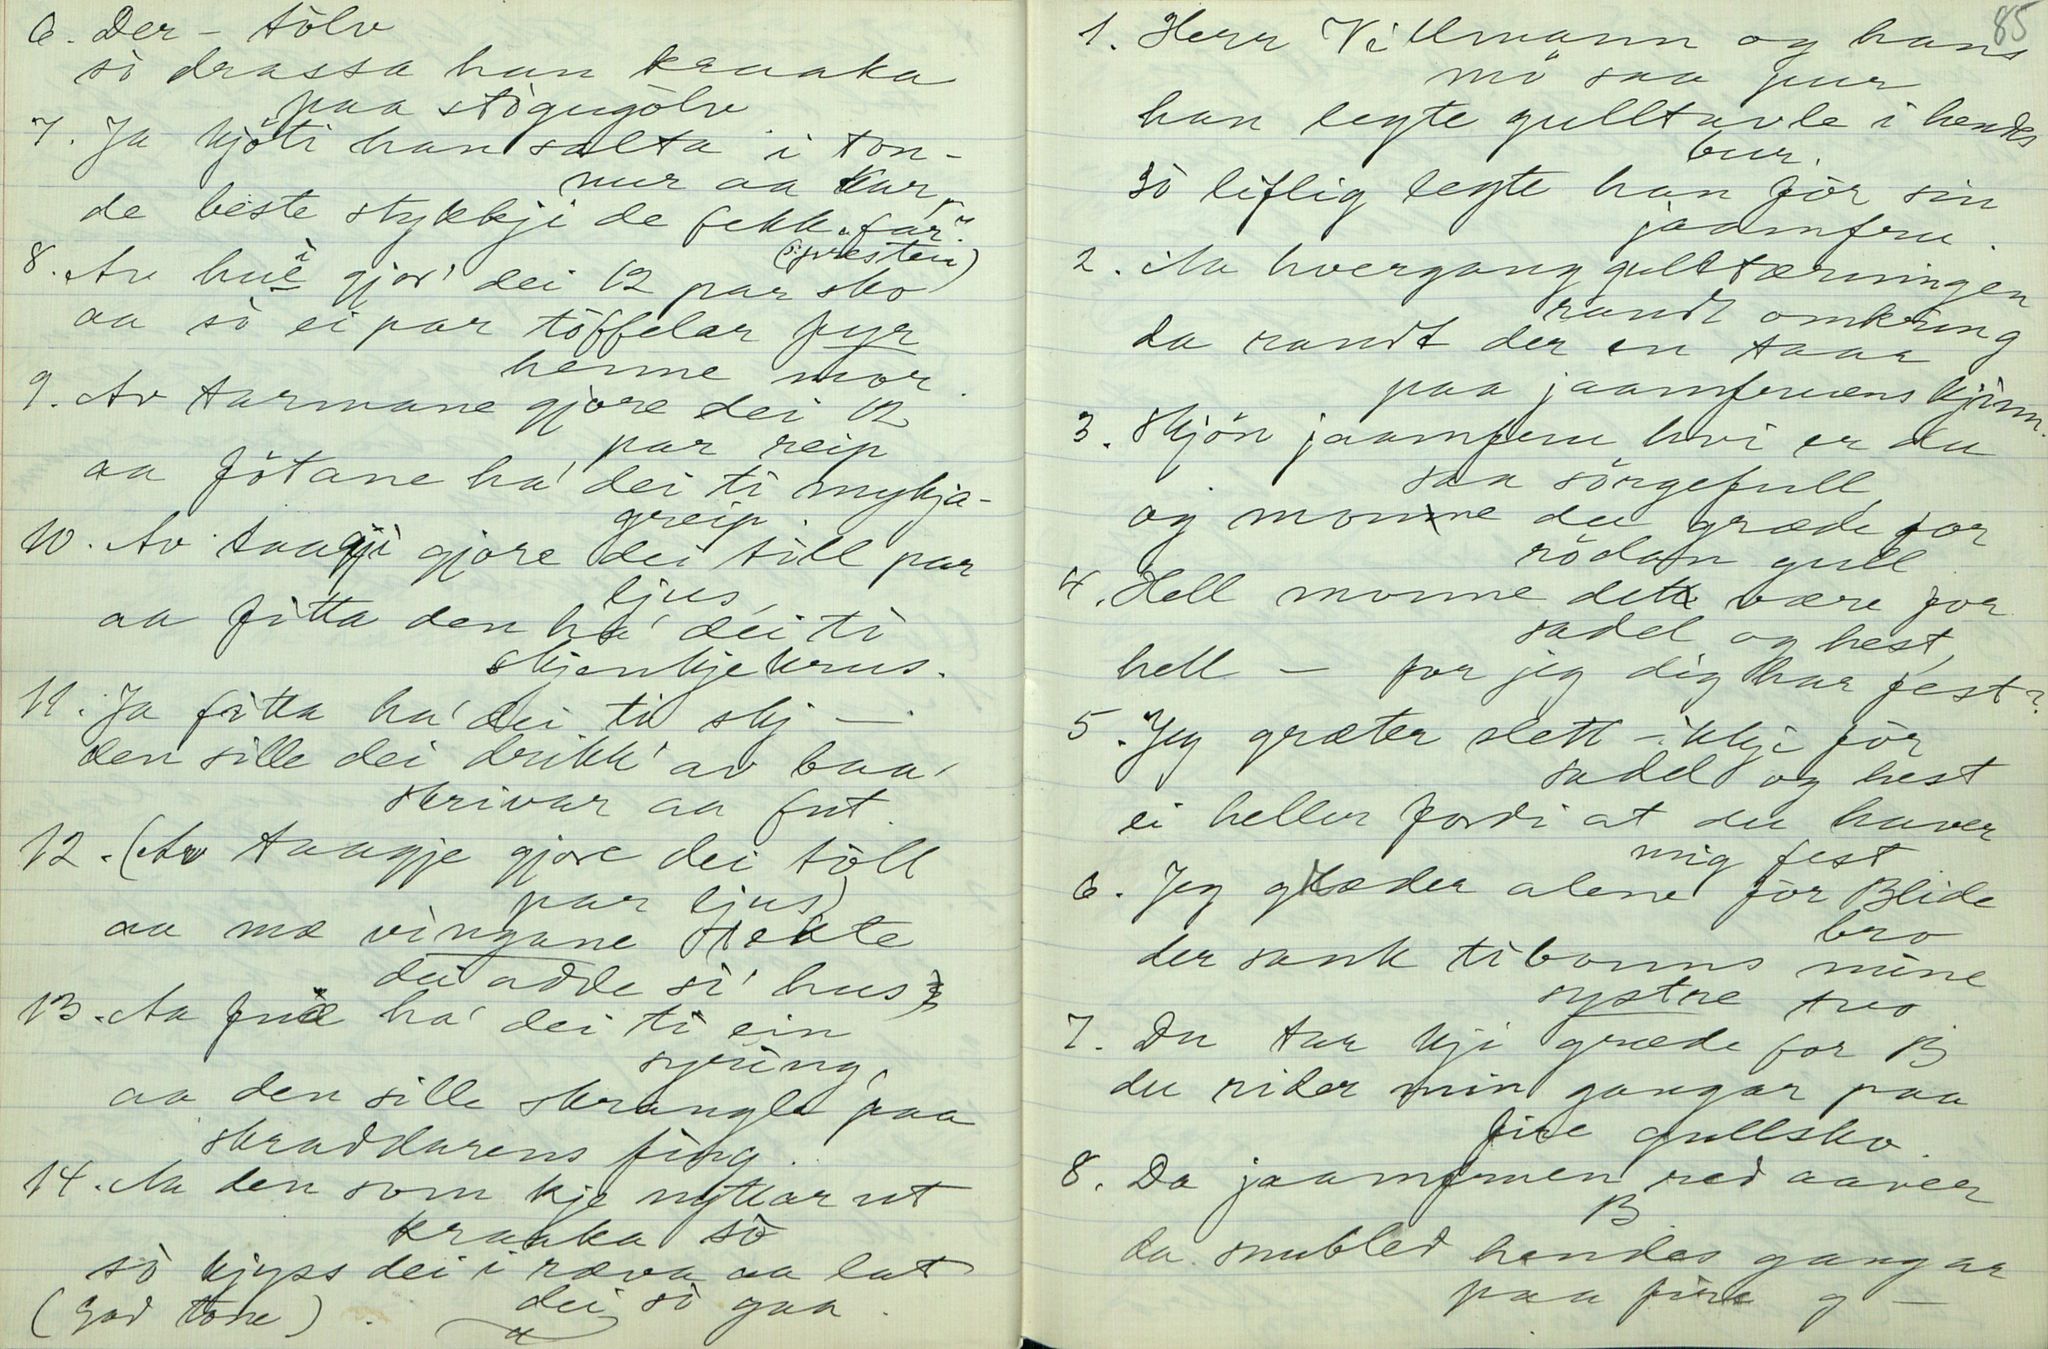 6. Der – tölv
sò drassa han kraaka
paa stògugölv
7. Ja kjöti han salta i ton-
nur aa kar,
de beste stykkji de fekk "far".
(ɔ: presten)
8. Av hui gjor' dei 12 par sko
aa sò ei par töffelar fyr
henne mor.
9. Av tarmane gjore dei 12
par reip
aa fötane ha' dei ti mykja-
greip.
10. Av taagji gjore dei till par
ljus,
aa fitta den ha' dei ti
skjenkjekrus.
11. Ja fitta ha' dei ti skj —
den sille dei drikk' av baa'
skrivar aa fut.
12. (Av taagje gjore dei töll
par ljus)
aa mæ vingane tækte
dei adde si' hus
13. Aa ha' dei ti ein
syring,
aa den sille skrangle paa
skraddarens fing.
14. Aa den som kje nyttar ut
kraaka sò
sò kjyss dei i ræva aa lat
dei sò gaa.
(God tone)
85
1. Herr Villmann og hans
mö saa pur
han legte gulltavle i hendes
bur.
Sò liflig legte han för sin
jaamfru.
2. Aa hvergang gulltærningen
randt omkring
da randt der en taar
paa jaamfruens kjinn.
3. Skjön jaamfru hvi er du
saa sörgefull,
og monne du græde for
rödan gull
4. Hell monne dett være for
sadel og hest,
hell — for jeg dig har fest?
5. Jeg græter slett – ikkji för
sadel og hest
ei heller fordi at du haver
mig fest
6. Jeg græder alene för Blide
bro
der sank tibonns mine
systre tvo
7. Du tar kji græde for B
du rider min gangar paa
fire gullsko.
8. Da jaamfruen red aaver
B.
da snubled hendes gangar
paa fire g —